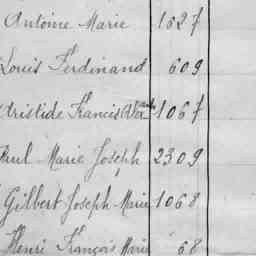 Antoine Marie 1627
Louis Ferdinand 609
Aristide Francis 1067
Paul Marie Joseph 2309
Gilbert Joseph Marie 1068
Henri François Marie 68